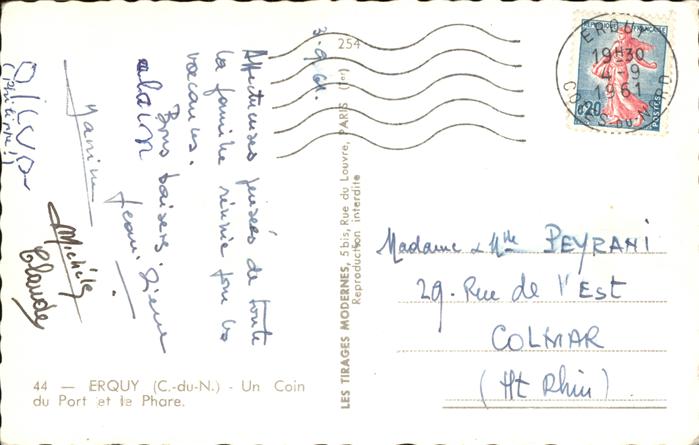 3-9-61.
Affectueuses pensées de toute
la famille réunie pour les
vacances.
Bons baisers.
alain
Jean-Pierre
Yanine
Michèle
Claude
254
LES TIRAGES MODERNES, 5 bis, Rue du Louvre, PARIS (1er)
Reproduction interdite
44 — ERQUY (C.-du-N.) - Un Coin
du Port et le Phare.
REPUBLIQUE FRANÇAISE
0,20
POSTES
ERQUY
19H30
4-9
1961
COTES-DU-NORD
Madame & Mlle PEYRANI
29. Rue de l'Est
COLMAR
(Ht Rhin)